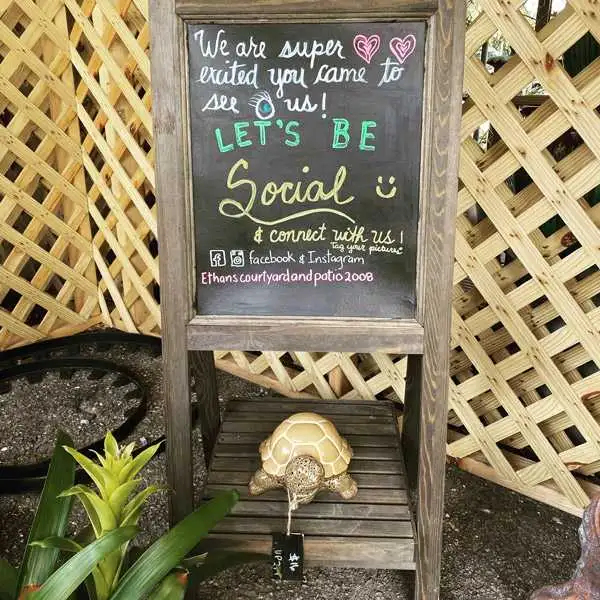 We are super
exited you came to
see us!
LET'S BE
Social
& connect with us!
Tag your pictures
facebook & Instagram
Ethans courtyard and patio 2008
$16